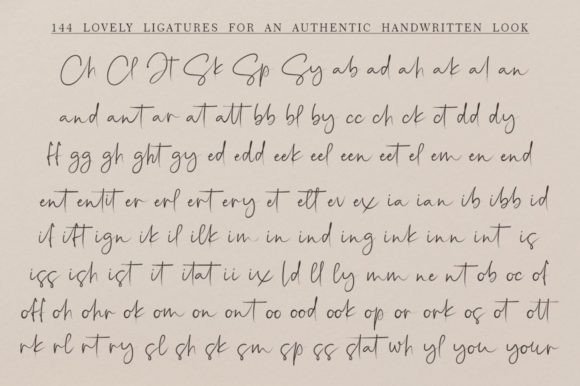 144 LOVELY LIGATURES FOR AN AUTHENTIC HANDWRITTEN LOOK
Ch Cl It Sk Sp Sy ab ad ah ak al an
and ant ar at att bb bl by cc ch ck ct dd dy
ff gg gh ght gy ed edd eek eel een eet el em en end
ent entit er erl ert ery et ett ev ex ia ian ib ibb id
if ift ign ik il ilk im in ind ing ink inn int is
iss ish ist it itat ii ix ld ll ly mm ne nt ob oc of
off oh ohr ok om on ont oo ood ook op or ork os ot ott
rk rl rt ry sl sh sk sm sp ss stat wh yl you your